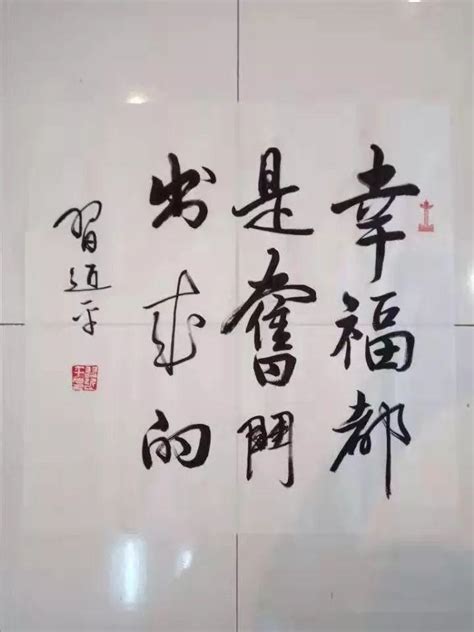 幸福都
是奮鬥
出来的
習道平